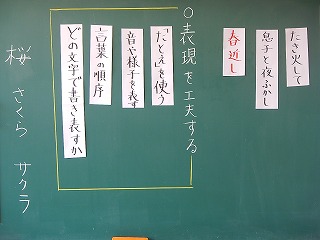 たき火して
息子と夜ふかし
春近し
○表現を工夫する
たとえを使う
音や様子を表す
言葉の順序
どの文字で書き表すか
桜 さくら サクラ